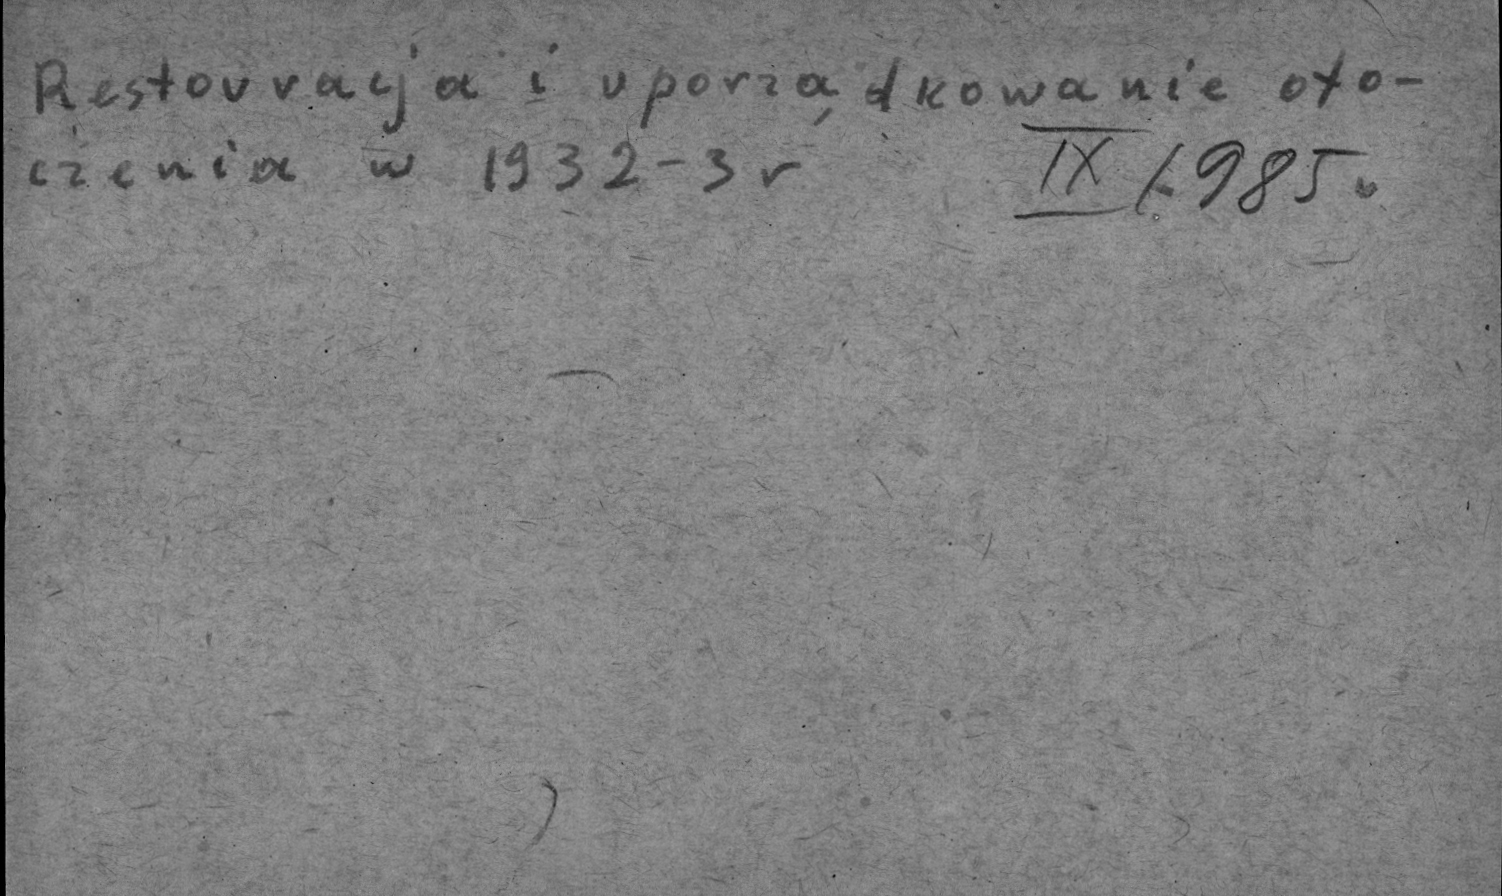 Restouracja i uporządkowanie oto-
czenia w 1932-3 r IX/-985.